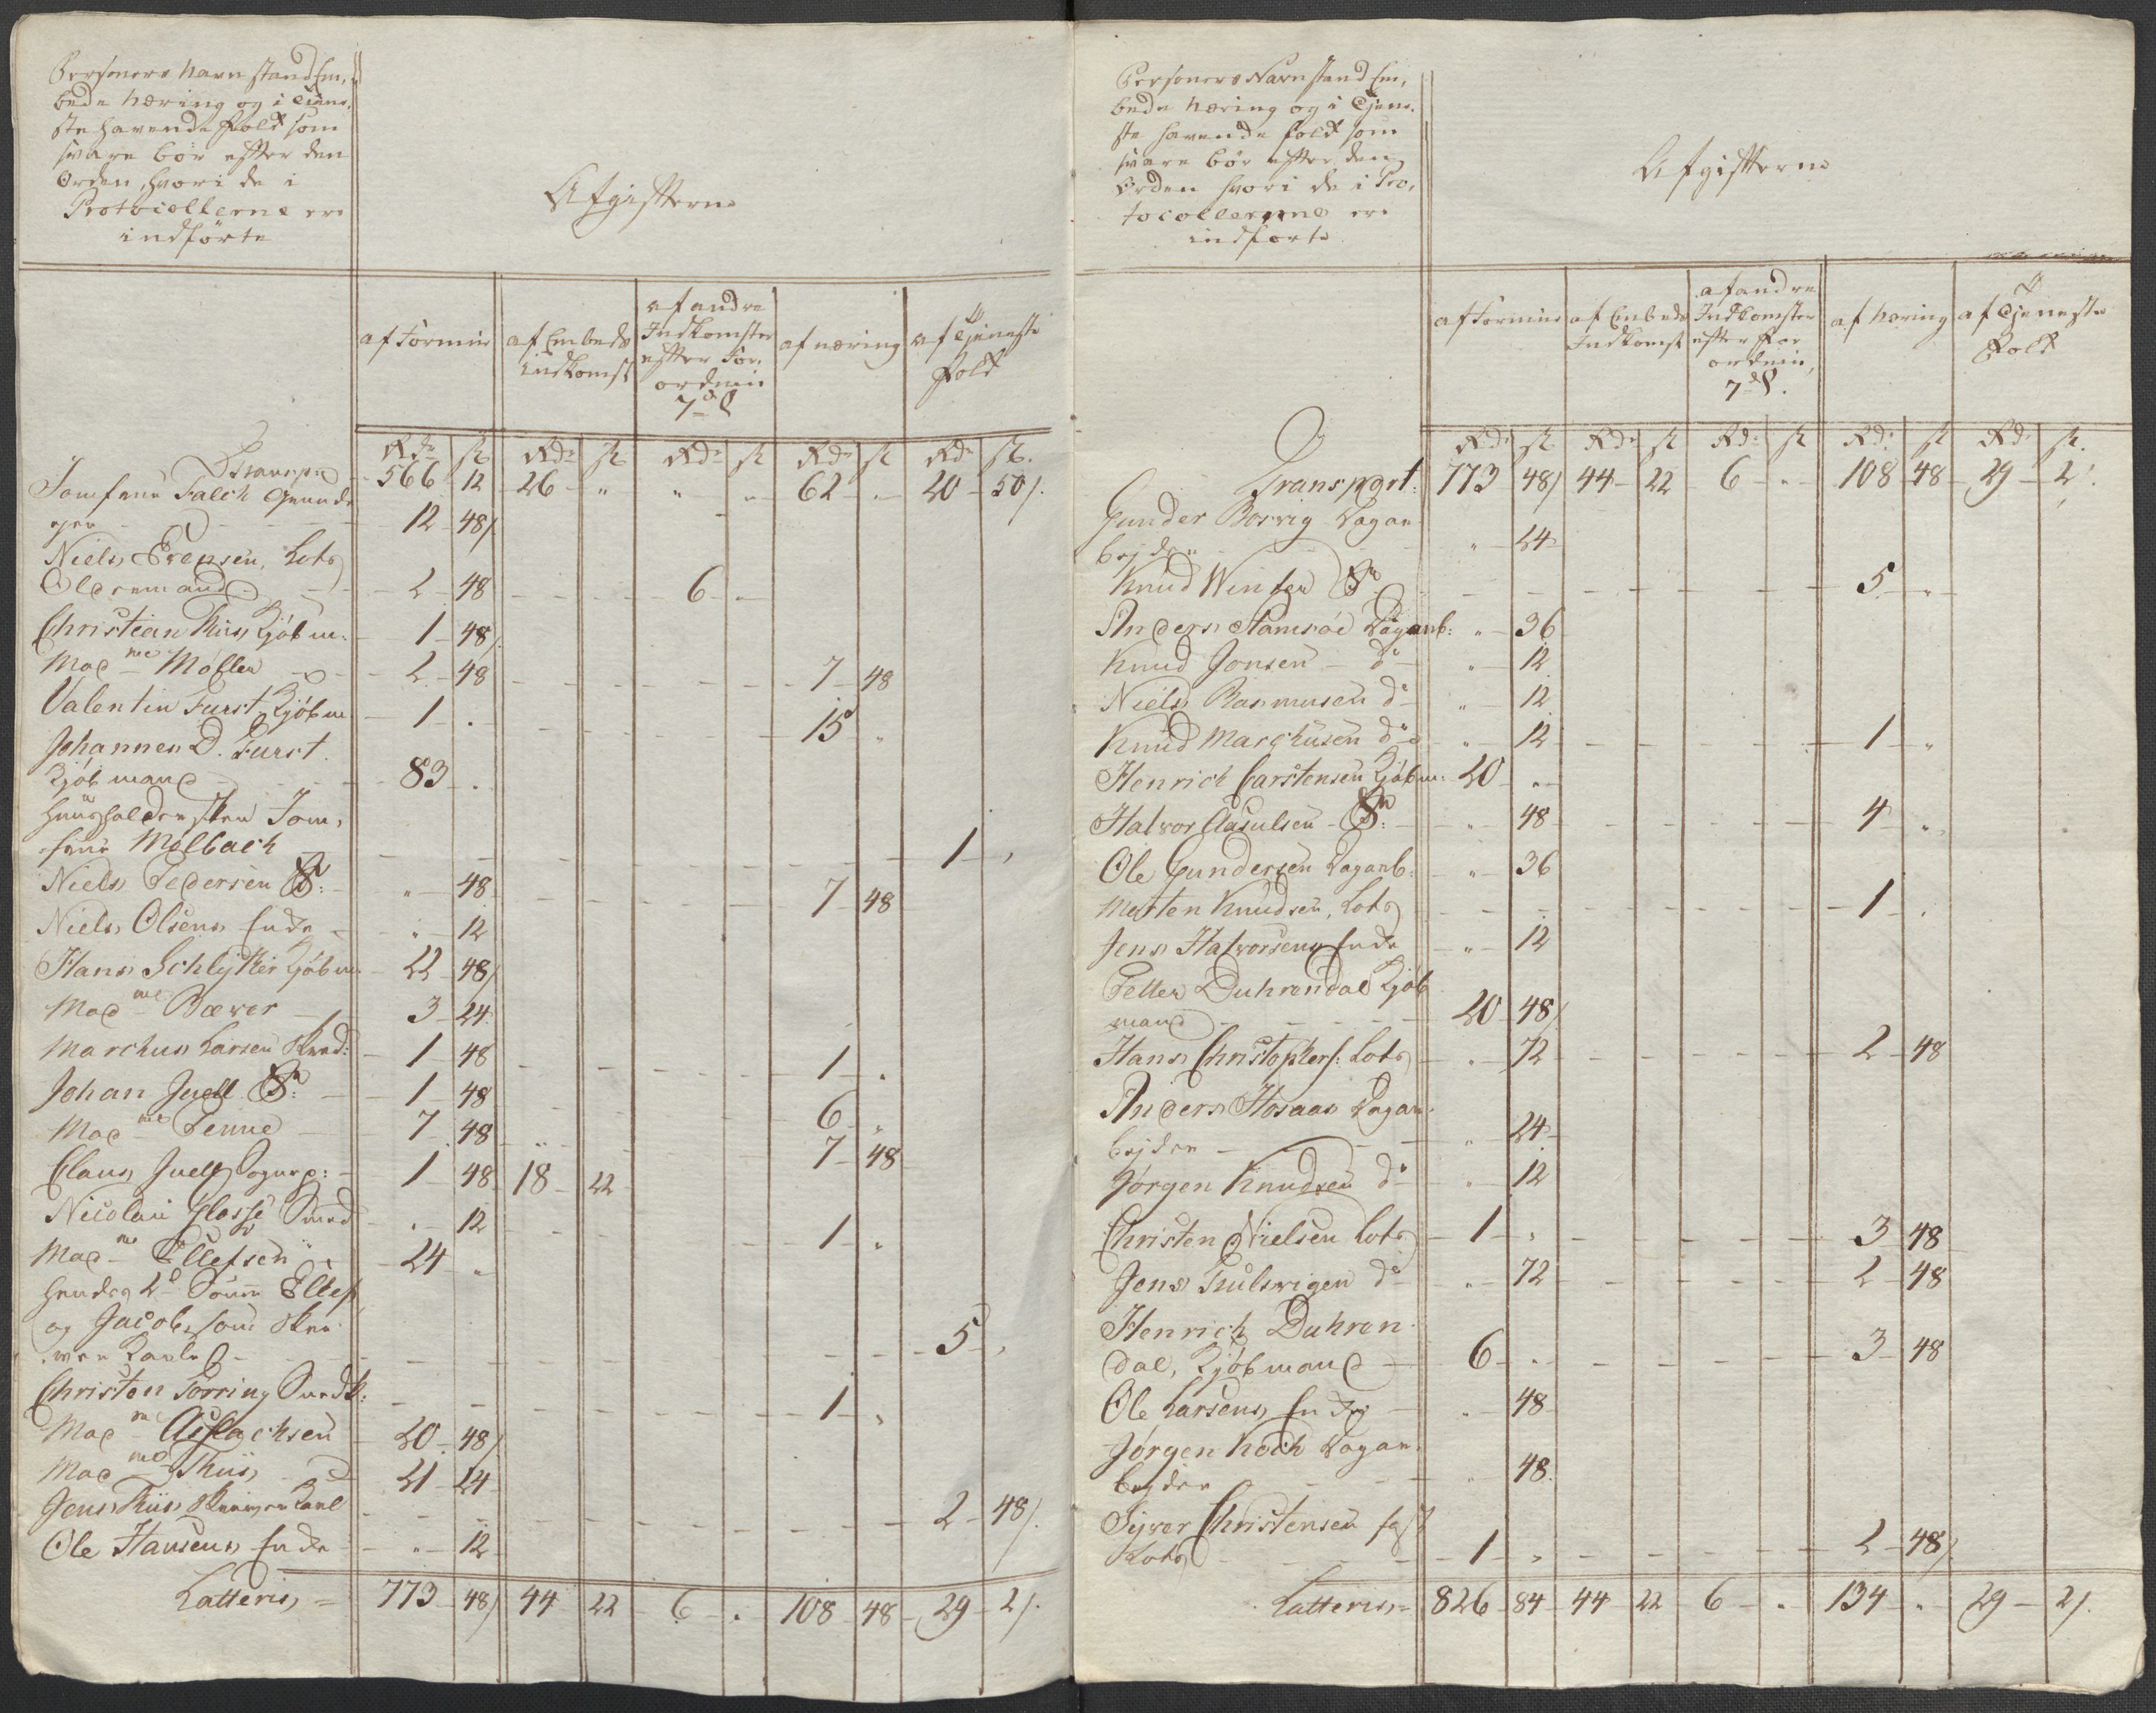 Personers Navn stand Em,
bede næring og i tiene,
ste havende folk som
svare bør efter den
Orden, hvori de i
Protocollerne ere
indførte
Afgifterne
af Formue
af Embeds
Indkomst
af andre
Indkomster
efter For,
ordnin
7de §
af næring
af tjeneste
folk
Rdr ſk Rdr ſk Rdr ſk Rdr ſk Rdr ſk.
Transport 566 12 26 " " " 62 " 20 50/.
Jomfrue Falch Grunde
ejer 12 48/.
Niels Evensen, Lods
Oldermand 2 48 6 "
Christian Thiis Kjøbm: 1 48/.
Madme Møller 2 48 7 48
Valentin Furst Kjøbm 1 . 15 "
Johannes D. Furst.
Kjøbmand 83 .
Huusholdersken Jom,
frue Mølbach 1 ,
Niels Pedersen Sr: " 48 7 48
Niels Olsens Enke " 12
Hans Schlytter Kjøbm 22 48/
Madme Bæver 3 24
Marchus Larsen Skræd: 1 48 1 .
Johan Juell Sr: 1 48 6 "
Madme Penne 7 48 7 48
Claus Juell Sognep: 1 48 18 22
Nicolai Glasse Smed . 12 1 .
Madme Ellefsen 24 "
hendes 2de Sønner Ellef
og Jacob, som Skri
ver Karle 5 ,
Christen Torring Snedk: 1 ,
Madme Aslachsen 20 48/
Madme Thiis 21 24
Jens Thiis Skriverkarl 2 48/.
Ole Hansens Enke " 12
Latteris, 773 48/ 44 22 6 . 108 48 29 2/.
Personers Navn stand Em,
bede næring og i Tjene,
ste havende folk som
svare bør efter den
Orden hvori de i Pro,
tocollerne ere
indførte
Afgifterne
af Formue
af Embeds
Indkomst
af andre
Indkomster
efter For
ordnin,
7de §.
af næring
af Tjeneste
folk
Rdr ſk Rdr ſk Rdr ſk Rdr ſk Rdr ſk.
Transport: 773 48/ 44 22 6 " 108 48 29 2/.
Gunder Borvig Dagar
bejder " 24
Knud Winter Sr 5 "
Anders Hamsøe Dagarb: " 36
Knud Jonsen do " 12
Niels Rasmusen do " 12
Knud Marchusen do " 12 1 "
Henrich Carstensen Kjøbm: 20 "
Halvor Aasulsen Sr: " 48 4 "
Ole Gundersen Dagarb: " 36
Morten Knudsen, Lods 1 .
Jens Halvorsens Enke " 12
Petter Duhrendal Kjøb
mand 20 48/.
Hans Christophers: Lods " 72 2 48
Anders Hosaas Dagar
bejder " 24
Jørgen Knudsen do " 12
Christen Nielsen Lods 1 " 3 48
Jens do " 72 2 48
Henrich Duhren
dal, Kjøbmand 6 " 3 48
Ole Larsens Enke " 48
Jørgen Koch Dagar
bejder " 48
Syver Christensen fast
Lods 1 , 2 48/.
Latteris, 826 84 44 22 6 " 134 " 29 2/.